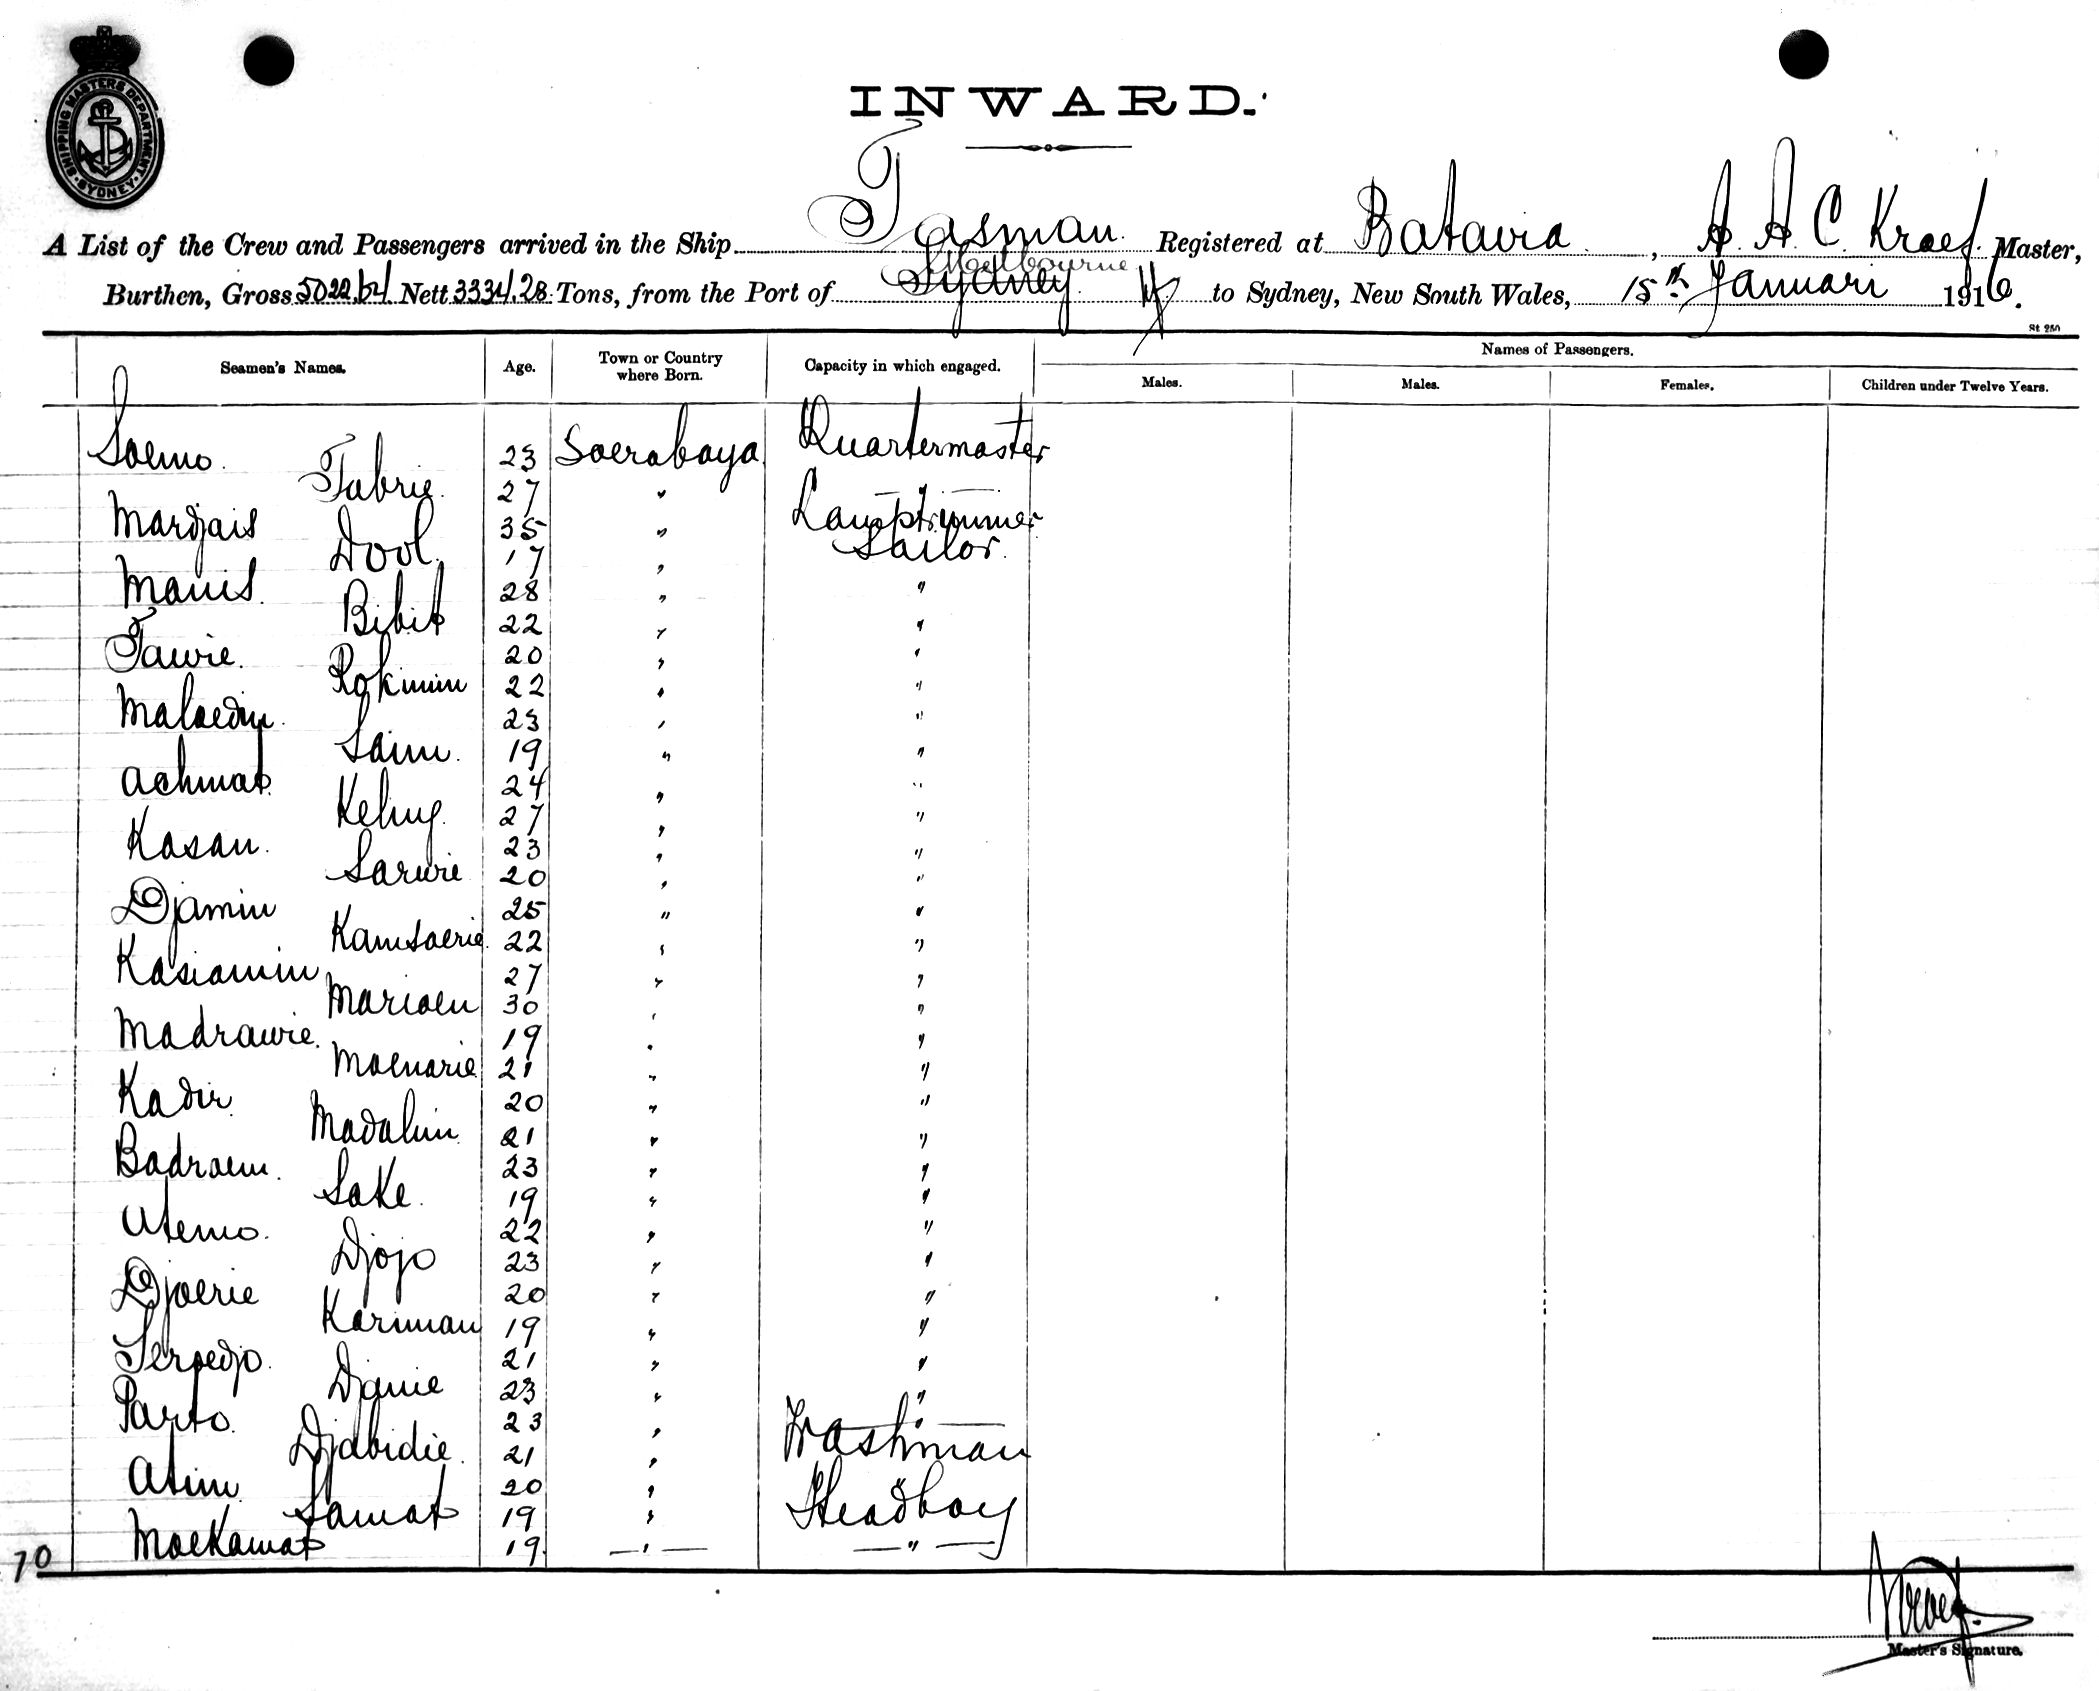 SHIPPING MASTERS DEPARTMENT
SYDNEY
INWARD.
A List of the Crew and Passengers arrived in the Ship Tasman. Registered at Batavia, A. A. C. Kraef. Master,
Melbourne
Burthen, Gross 5022,64 Nett 3334.28 Tons, from the Port of Sydney to Sydney, New South Wales, 15th Januari 1916.
St 250
Seamen's Names. Age. Town or Country where Born. Capacity in which engaged. Names of Passengers.
Males. Males. Females. Children under Twelve Years.
Soemo. 23 Soerabaya Quartermaster
Tabrie. 27 " — " —
Mardjais 35 " Lamptrimmer
Dool. 17 " Sailor.
Manis. 28 " "
Bibit 22 " "
Tawie. 20 " "
Rokimin 22 " "
Maloedin. 23 " "
Saim. 19 " "
Achmat. 24 " "
27 " "
Kasan. 23 " "
Sarwie 20 " "
Djamin 25 " "
Kamsaerie. 22 " "
Kasiamin 27 " "
Marioen 30 " "
Madrawie. 19 " "
Moenarie 21 " "
Kadir 20 " "
Madalim 21 " "
Badroem. 23 " "
Sake. 19 " "
Atemo. 22 " "
Djojo 23 " "
Djoerie 20 " "
Kariman 19 " "
21 " "
Djanie 23 " "
Parto. 23 " — " —
Djabidie. 21 " Washman
Atim 20 " "
Samat 19 " Headboy
Moekamat 19. — " — — " —
70
Kraef.
Master's Signature.